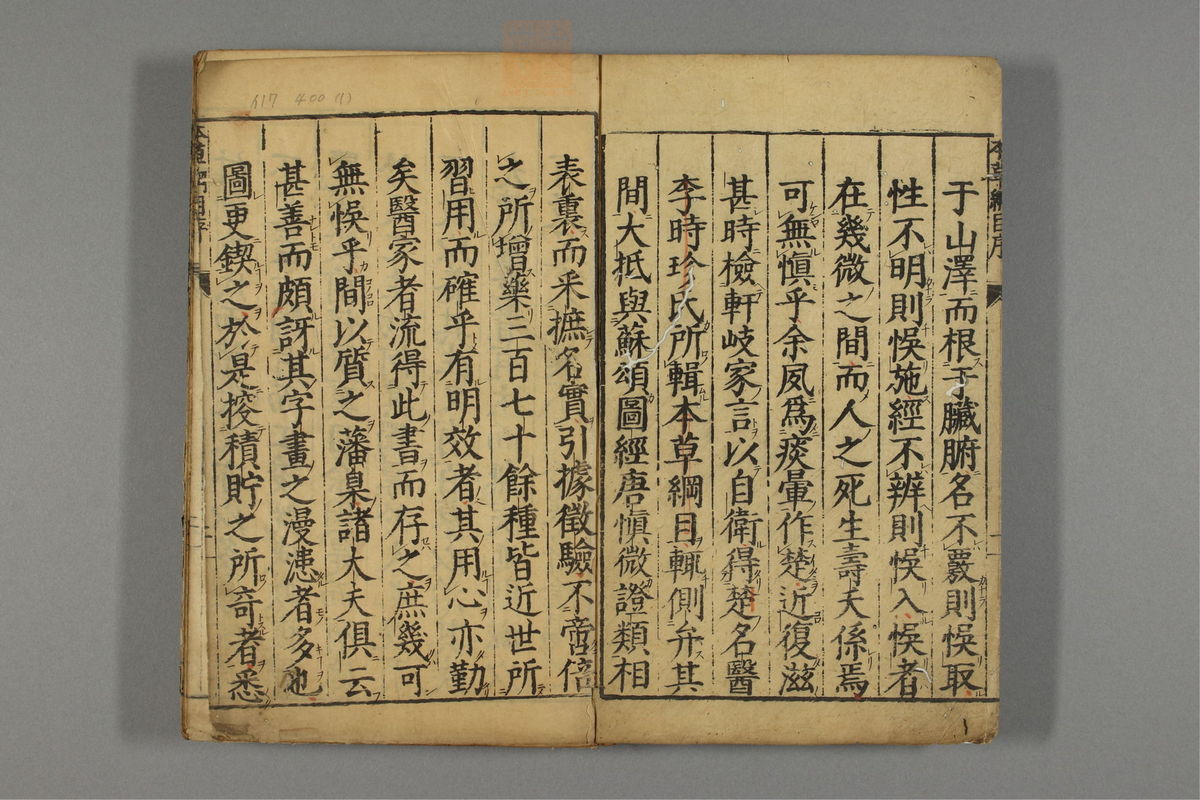 本草綱目序
于山澤而根于臟腑名不覈則悞取
性不明則悞施經不辨則悞入悞者
在幾微之間而人之死生壽夭係焉
可無愼乎余夙爲痰暈作楚近復滋
甚時檢軒岐家言以自衛得楚名醫
李時珍氏所輯本草綱目輒側弁其
間大抵與蘇頌圖經唐愼微證類相
表裏而采摭名實引據徵驗不啻倍
之所增藥三百七十餘種皆近世所
習用而確乎有明效者其用心亦勤
矣醫家者流得此書而存之庶幾可
無悞乎間以質之藩臬諸大夫俱云
甚善而頗訝其字畫之漫漶者多也
圖更鍥之於是捘積貯之所奇者悉
617 400 (1)